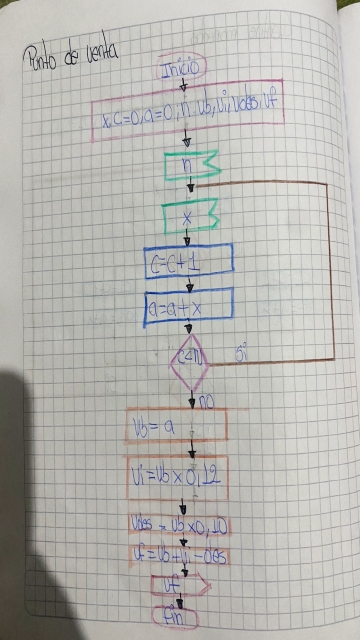 Punto de venta
Inicio
x, c=0, a=0, n vb, vi, vdes, vf
n
x
c=c+1
a=a+x
c<n
si
no
vb= a
vi=vb x 0,12
vdes = vb x 0,10
vf=vb+vi-des
vf
fin